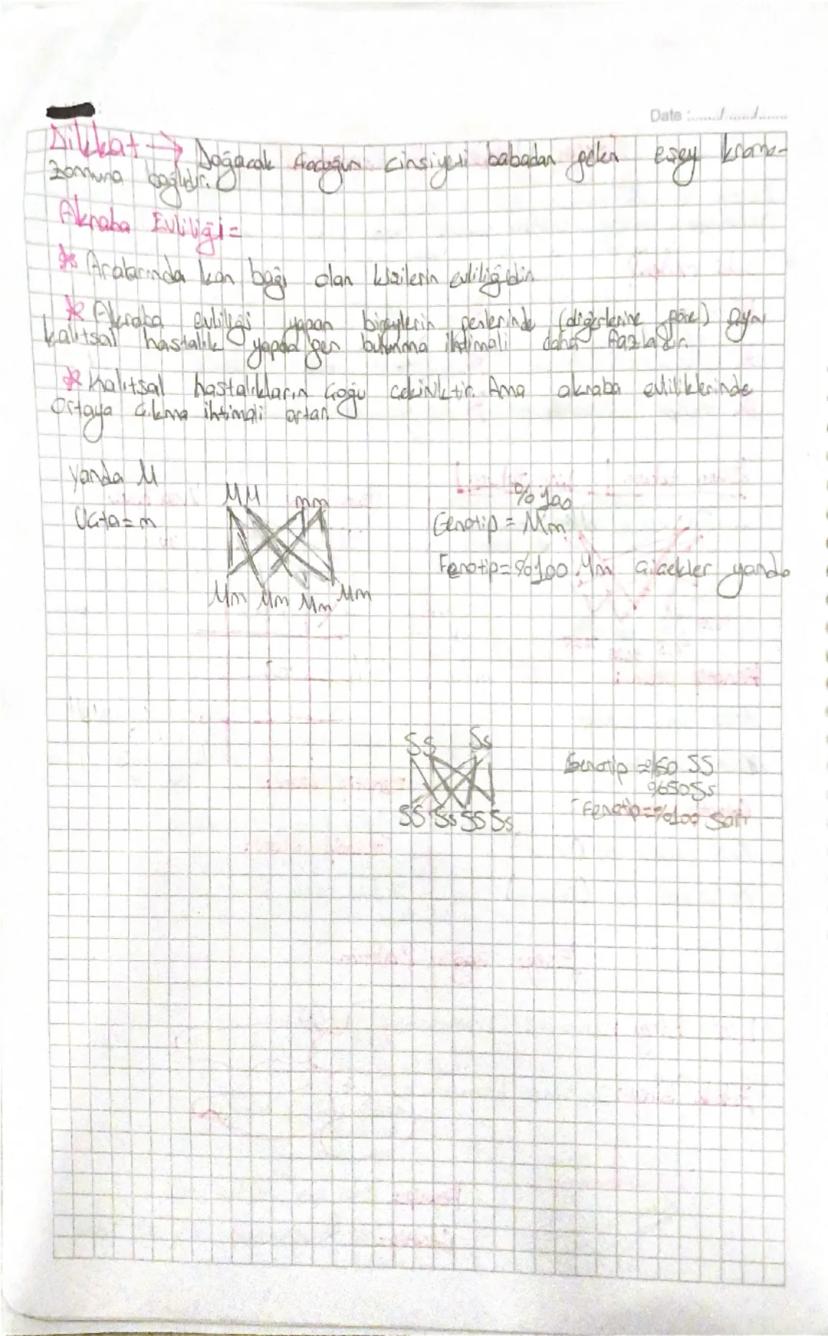 Date :....../ ....../......
Dikkat → Doğacak çocuğun cinsiyeti babadan gelen eşey kromo-
zomuna bağlıdır.
Akraba Evliliği =
* Aralarında kan bağı olan kişilerin evliliğidir.
* Akraba evliliği yapan bireylerin genlerinde (diğerlerine göre) aynı
kalıtsal hastalık yapan gen bulunma ihtimali daha fazladır.
* Kalıtsal hastalıkların çoğu çekiniktir. Ama akraba evliliklerinde
ortaya çıkma ihtimali artar.
Yanda M
MM mm
%100
Genotip = Mm
= m
Fenotip = %100 Mm Çiçekler yanda
Mm Mm Mm Mm
SS Ss
Genotip = %50 SS
%50 Ss
SS Ss SS Ss
Fenotip = %100 Sarı